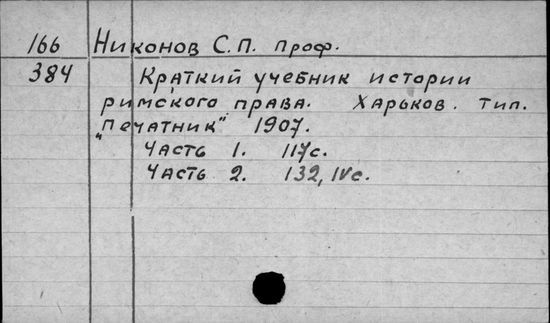 166 Никонов С.П. проф.
384 Краткий учебник истории
римского права. Харьков. тип.
„Печатник" 1907.
Часть 1. 117с.
Часть 2. 132, IVс.